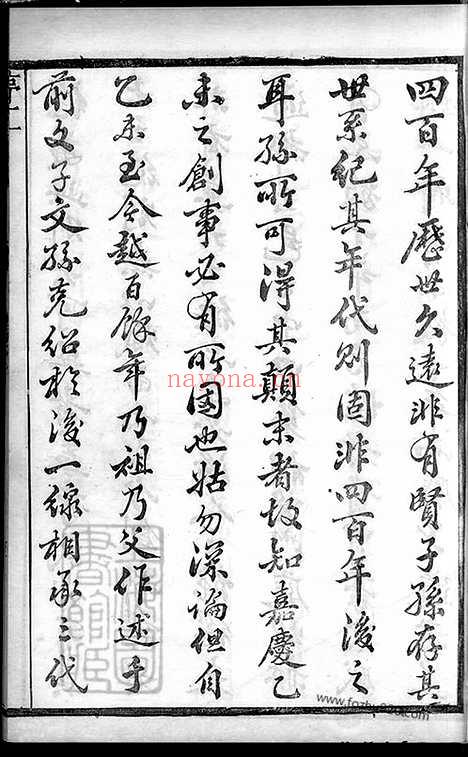 四百年歷世久遠非有賢子孫存其
世系紀其年代則固非四百年後之
耳孫所可得其顛末者故知嘉慶乙
未之創事必有所因也姑勿深論但自
乙未至今越百餘年乃祖乃父作述于
前文子文孫克紹於後一線相承三代
序二
nayona.cn